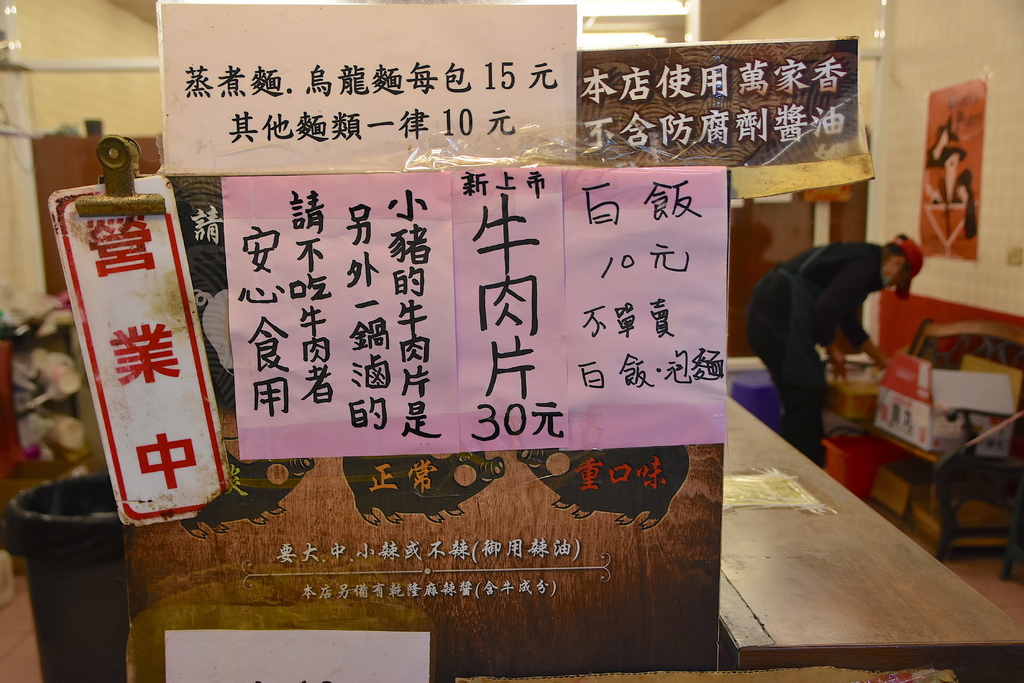 蒸煮麵.烏龍麵每包15元
其他麵類一律10元
本店使用萬家香
不含防腐劑醬油
營業中
請
新上市
牛肉片
30元
小豬的牛肉片是
另外一鍋滷的
請不吃牛肉者
安心食用
白飯
10元
不單賣
白飯.泡麵
正常
重口味
要大.中.小辣或不辣(御用辣油)
本店另備有乾隆麻辣醬(含牛成分)